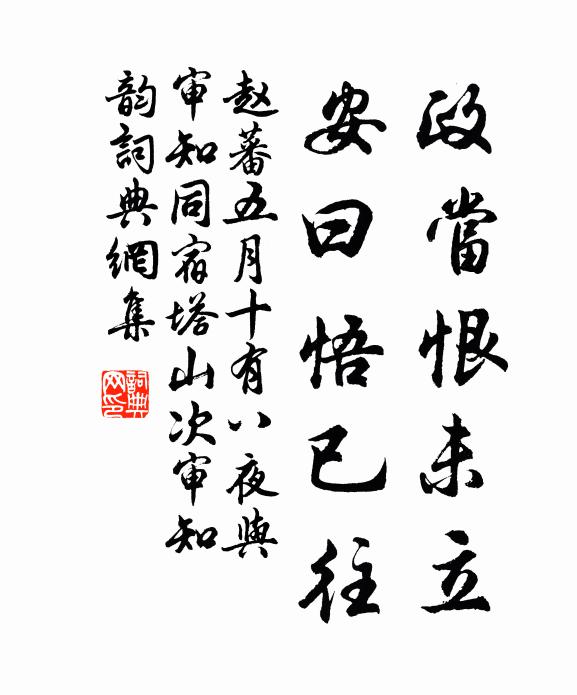 政當恨未立
安曰悟已往
赵蕃五月十有八夜與
审知同宿塔山次审知
韵詞典網集
詞典网印